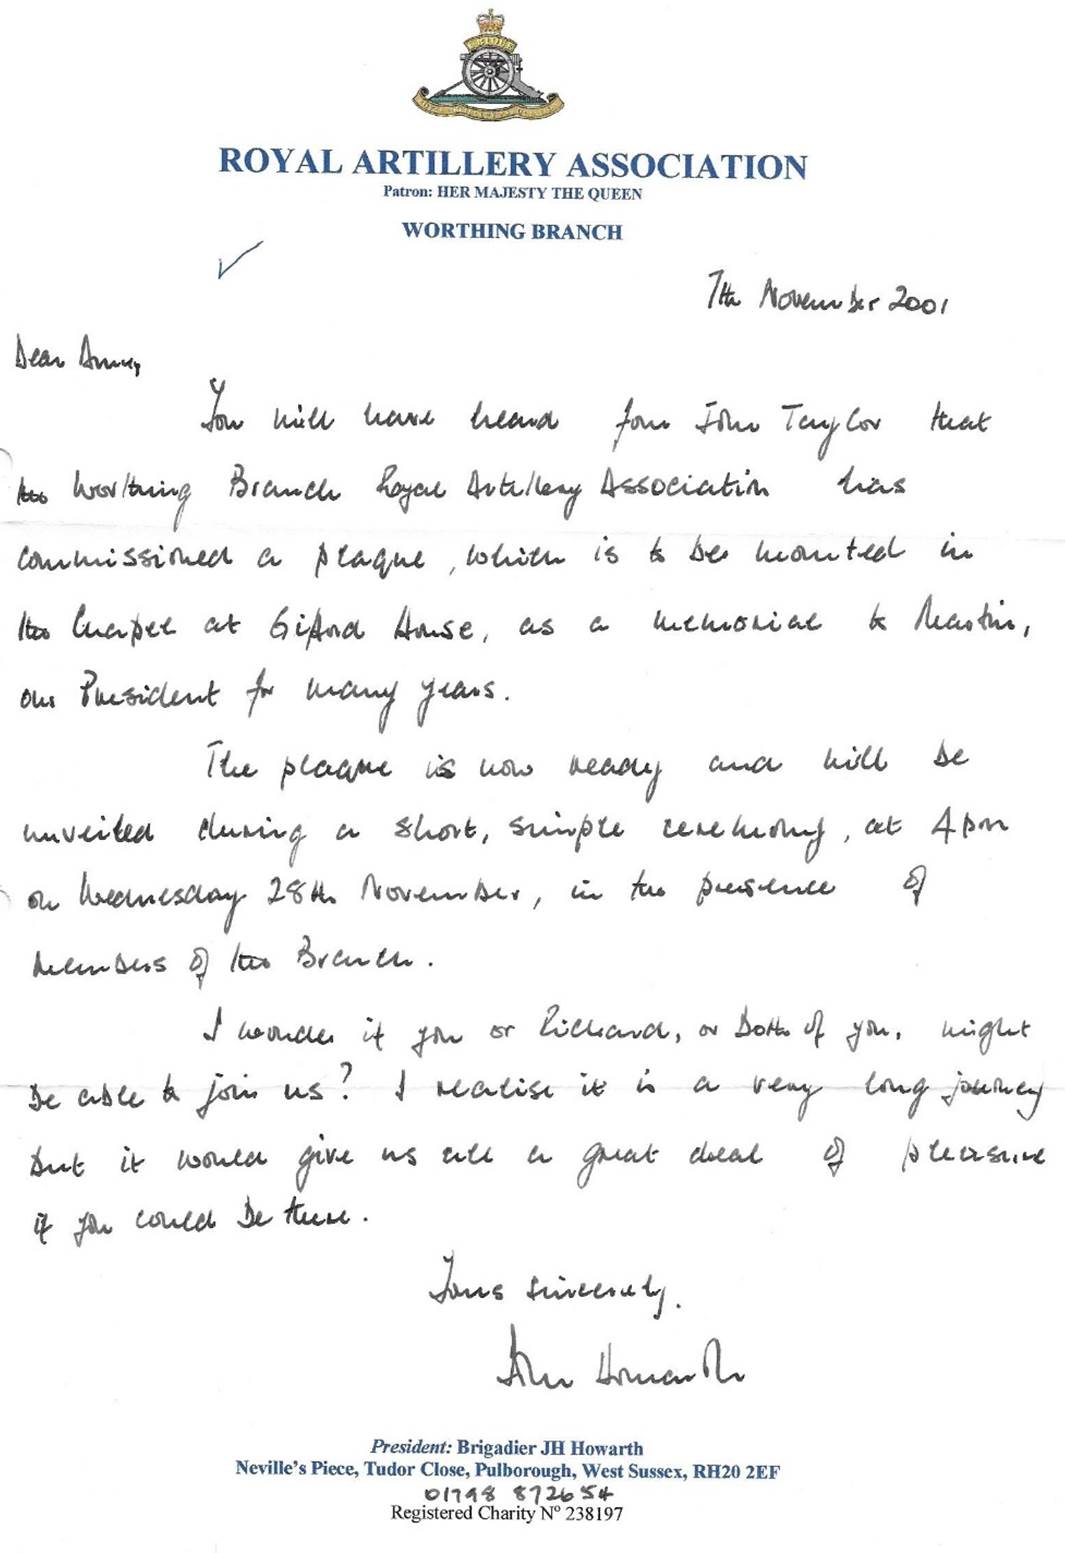 ROYAL ARTILLERY ASSOCIATION
Patron: HER MAJESTY THE QUEEN
WORTHING BRANCH
7th November 2001
Dear
You will have heard from John Taylor that
the Worthing Branch Royal Artillery Association has
commissioned a plaque, which is to be mounted in
the Chapel at Gifford House, as a memorial to Martin,
our President for many years.
The plaque is now ready and will be
unveiled during a short, simple ceremony, at 4pm
on Wednesday 28th November, in the presence of
members of the Branch.
I wonder if you or Richard, or both of you, might
be able to join us? I realise it is a very long journey
but it would give us all a great deal of pleasure
if you could be there.
Yours sincerely,
John Howarth
President: Brigadier JH Howarth
Neville's Piece, Tudor Close, Pulborough, West Sussex, RH20 2EF
01798 872654
Registered Charity Nº 238197